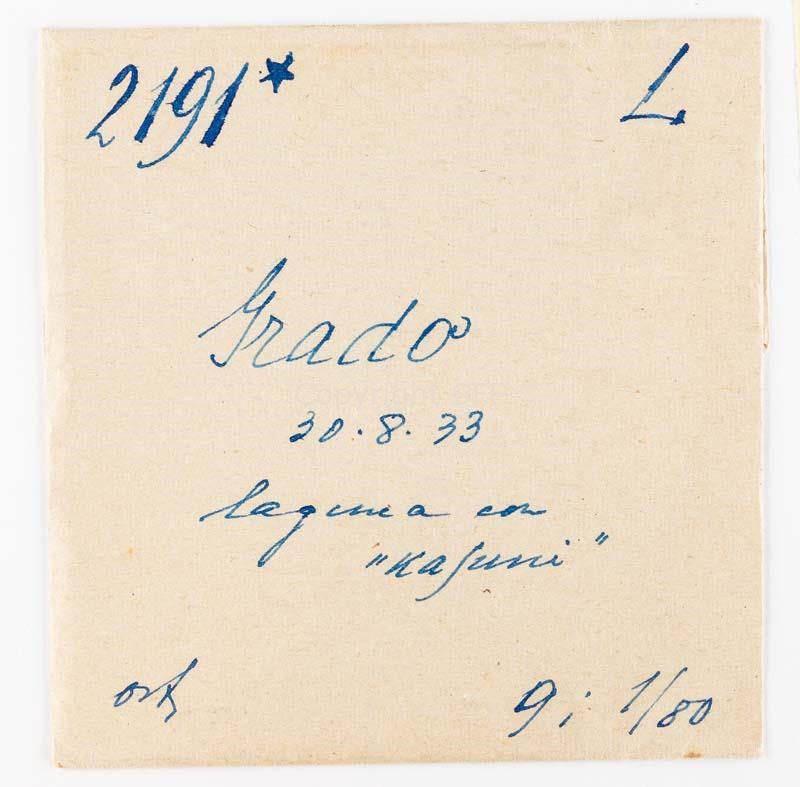 2191* L
Grado
30.8.33
laguna con
"Kasuni"
ort
9; 1/80